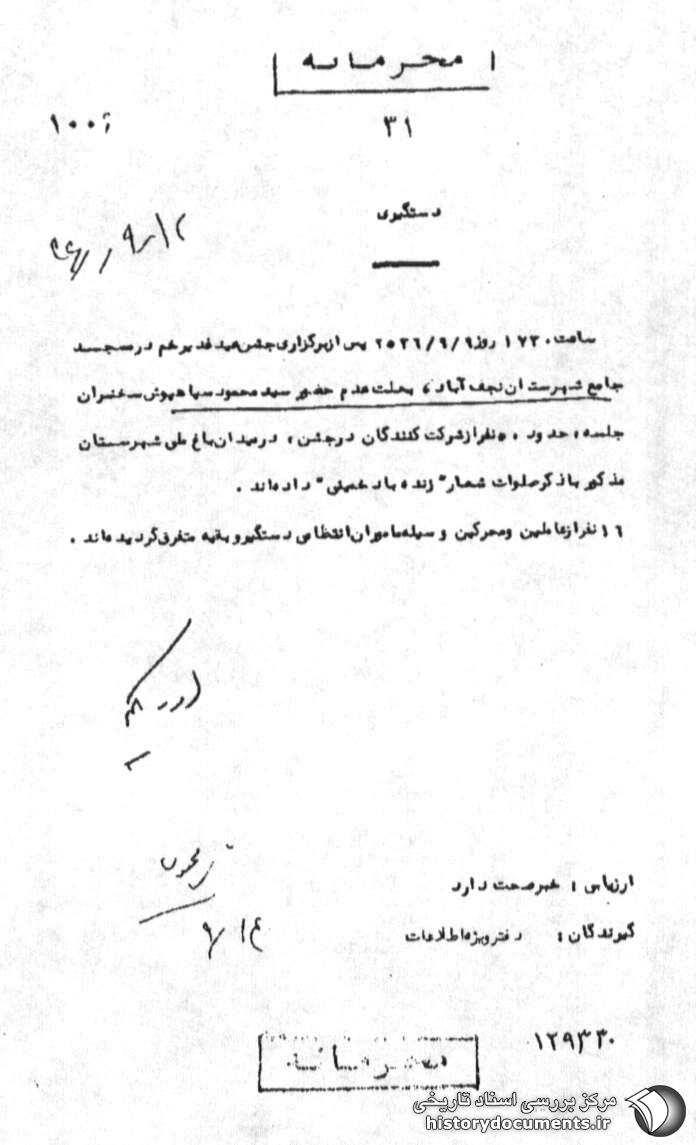 محرمانه
۱۰۰۶
۳۱
دستگیری
۹/۱۲
ساعت ۱۷۳۰ روز ۲۵۳۶/۹/۹ پس از برگزاری جشن عید غدیرخم در مسجد
جامع شهرستان نجف آباد، بعلت عدم حضور سید محمود سیاهپوش سخنران
جلسه، حدود ۵۰ نفر از شرکت کنندگان در جشن، در میدان باغ ملی شهرستان
مذکور با ذکر صلوات شعار "زنده باد خمینی" داده‌اند.
۱۶ نفر از عاملین و محرکین وسیله ماموران انتظامی دستگیر و بقیه متفرق گردیده‌اند.
ارزیابی: خبر صحت دارد
گیرندگان: دفتر ویژه اطلاعات
۹/۱۴
۱۲۹۳۳۰
محرمانه
مرکز بررسی اسناد تاریخی
historydocuments.ir